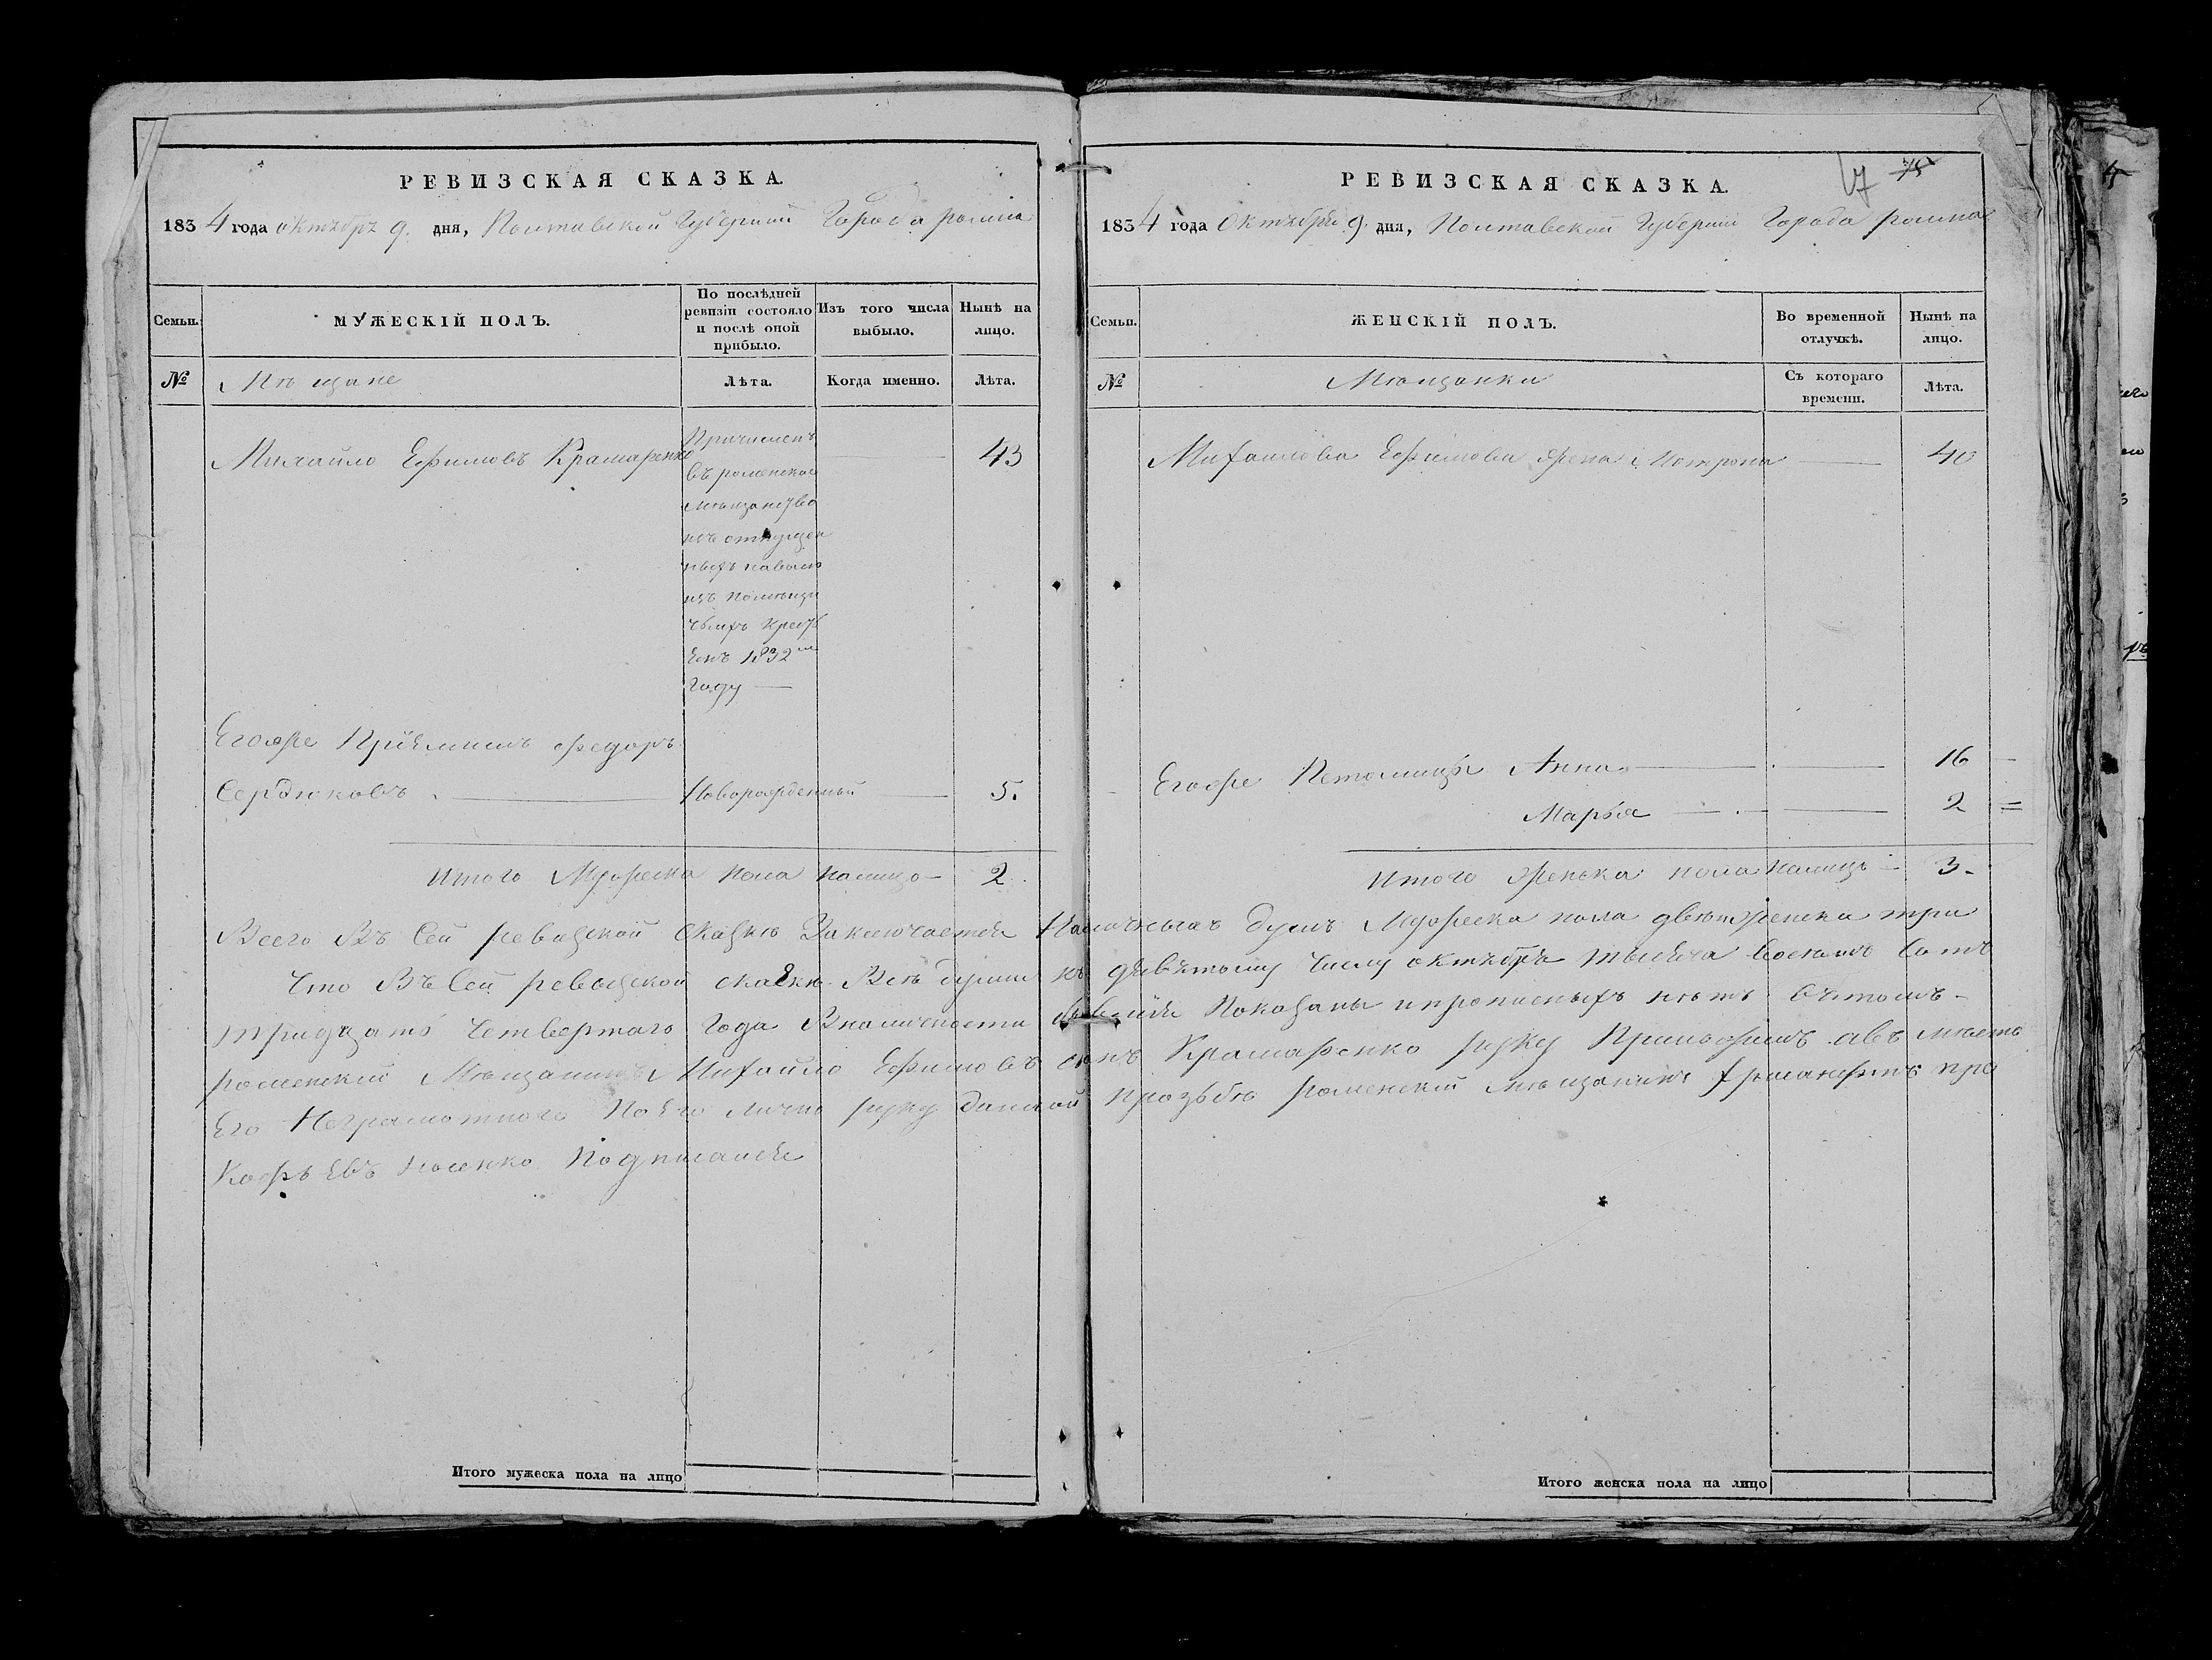 РЕВИЗСКАЯ СКАЗКА.
1834 года октября 9. дня, Полтавской Губернии Города ромна
Семьи.
МУЖЕСКІЙ ПОЛЪ.
По послѣдней ревизіи состояло и послѣ оной прибыло.
Изъ того числа выбыло.
Нынѣ на лицо.
№
Мѣщане
Лѣта.
Когда именно.
Лѣта.
Михайло Ефимовъ Крамаренко
43
Причисленъ
въ роменское
мѣщанство
изъ отпущен
ныхъ наволю
изъ помѣщи
чьихъ крест
енъ 1832
году
Егоже Приемишъ Федоръ
Сердюковъ Новорожденный 5.
Итого Мужеска пола налицо 2
РЕВИЗСКАЯ СКАЗКА.
67 75
1834 года Октября 9. дня, Полтавской Губернии Города ромна
Семьи.
ЖЕНСКІЙ ПОЛЪ.
Во временной отлучкѣ.
Нынѣ на лицо.
№
Мѣщанки
Съ котораго времени.
Лѣта.
Михайлова Ефимова жена Мотрона 40
Егоже Петомицы Анна 16
Марья 2
Итого женска пола налицо 3.
Всего Въ Сей ревизской сказкѣ Заключается Наличныхъ душъ Мужеска пола двѣ женска три
Что Въ Сей ревизской сказкѣ Всѣ души къ девятому числу октября тысяча восемь сотъ
тридцать четвертаго года Вналичности показаны ипрописныхъ нѣтъ вътомъ
роменский Мѣщанинъ Михайло Ефимовъ сынъ Крамаренко руку Приложилъ авъ мѣсто
Его Неграмотного По Его лично руку данной прозьбѣ роменский мѣщанинъ про
Подписался
Итого мужеска пола на лицо
Итого женска пола на лицо